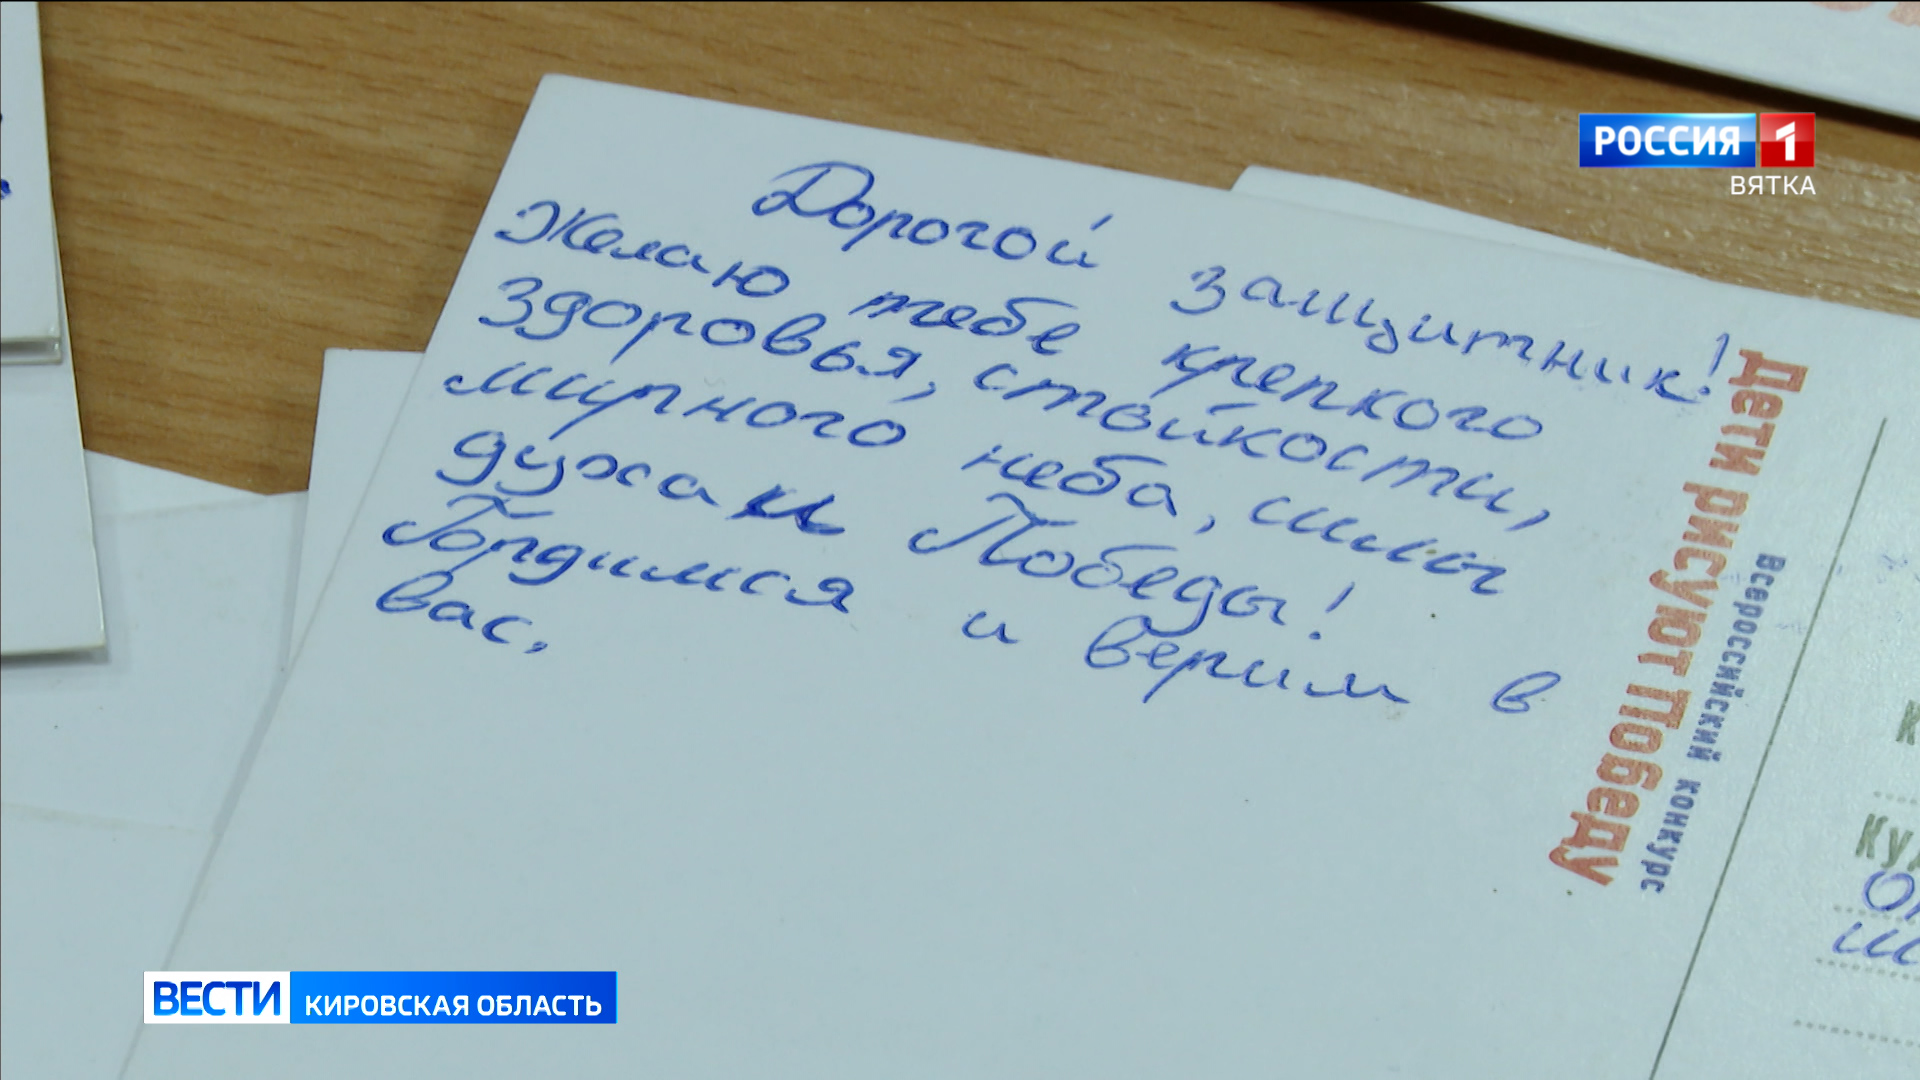 РОССИЯ 1
ВЯТКА
Дорогой защитник!
Желаю тебе крепкого
здоровья, стойкости,
мирного неба, силы
духа и Победы!
Гордимся и верим в
вас.
Дети рисуют Победу
Всероссийский конкурс
ВЕСТИ КИРОВСКАЯ ОБЛАСТЬ